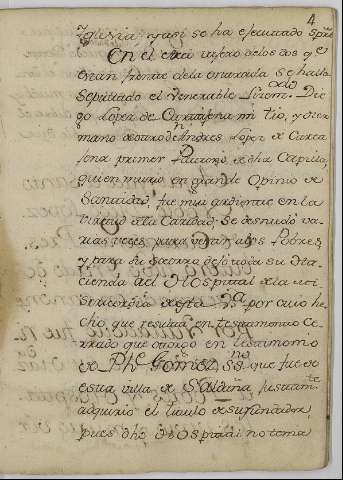 4
Yglesia y asi se ha executado spre
En el otro lucero de los dos qe
estan frente de la enarrada se halla
sepultado el Venerable Lizendo. Die
go Lopez de Cartajena mi tio, y her
mano de otro dn Andres Lopez de Carta
jena primer Patrono de dha Capilla,
quien murio en grande Opinion de
Santidad, fue mui ardiente en la
virtud de la Caridad, se desnudó va
rias veces para vestir a los Pobres,
y para su socorro dejo toda su Ha
cienda al Hospital de la mi
sericordia de esta Va por cuio he
cho que resulta en testamento Ce
rrado que otorgó en testimonio
de Phe Gomez, Sno que fue de
esta villa de Saldaña justamte
adquirio el titulo de su fundador
pues dho Hospital no tenia